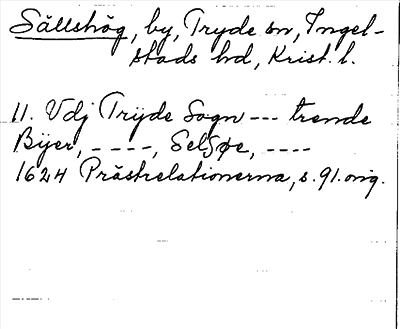 Sällshög, by, Tryde sn, Ingel-
stads hd, Krist. l.
11. Vdj Trÿde Sogn --- trende
Bÿer, ----, Selsøe, ----
1624 Prästrelationerna, s. 91. orig.